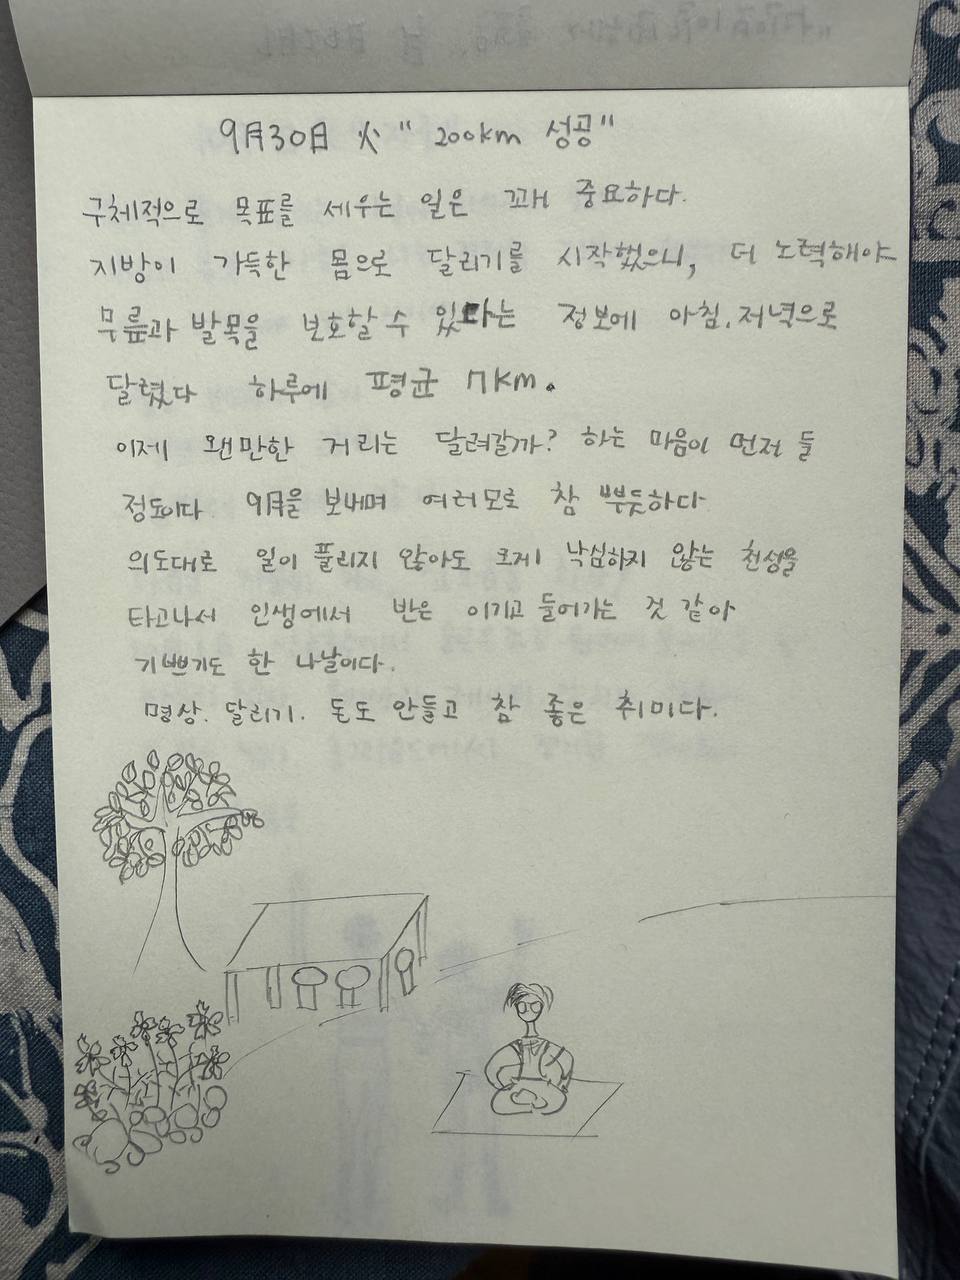 9月30日 火 " 200km 성공"
구체적으로 목표를 세우는 일은 꽤 중요하다.
지방이 가득한 몸으로 달리기를 시작했으니, 더 노력해야
무릎과 발목을 보호할 수 있다는 정보에 아침.저녁으로
달렸다 하루에 평균 7km.
이제 왠만한 거리는 달려갈까? 하는 마음이 먼저 들
정도이다 9月을 보내며 여러모로 참 뿌듯하다
의도대로 일이 풀리지 않아도 크게 낙심하지 않는 천성을
타고나서 인생에서 반은 이기고 들어가는 것 같아
기쁘기도 한 나날이다.
명상. 달리기. 돈도 안들고 참 좋은 취미다.